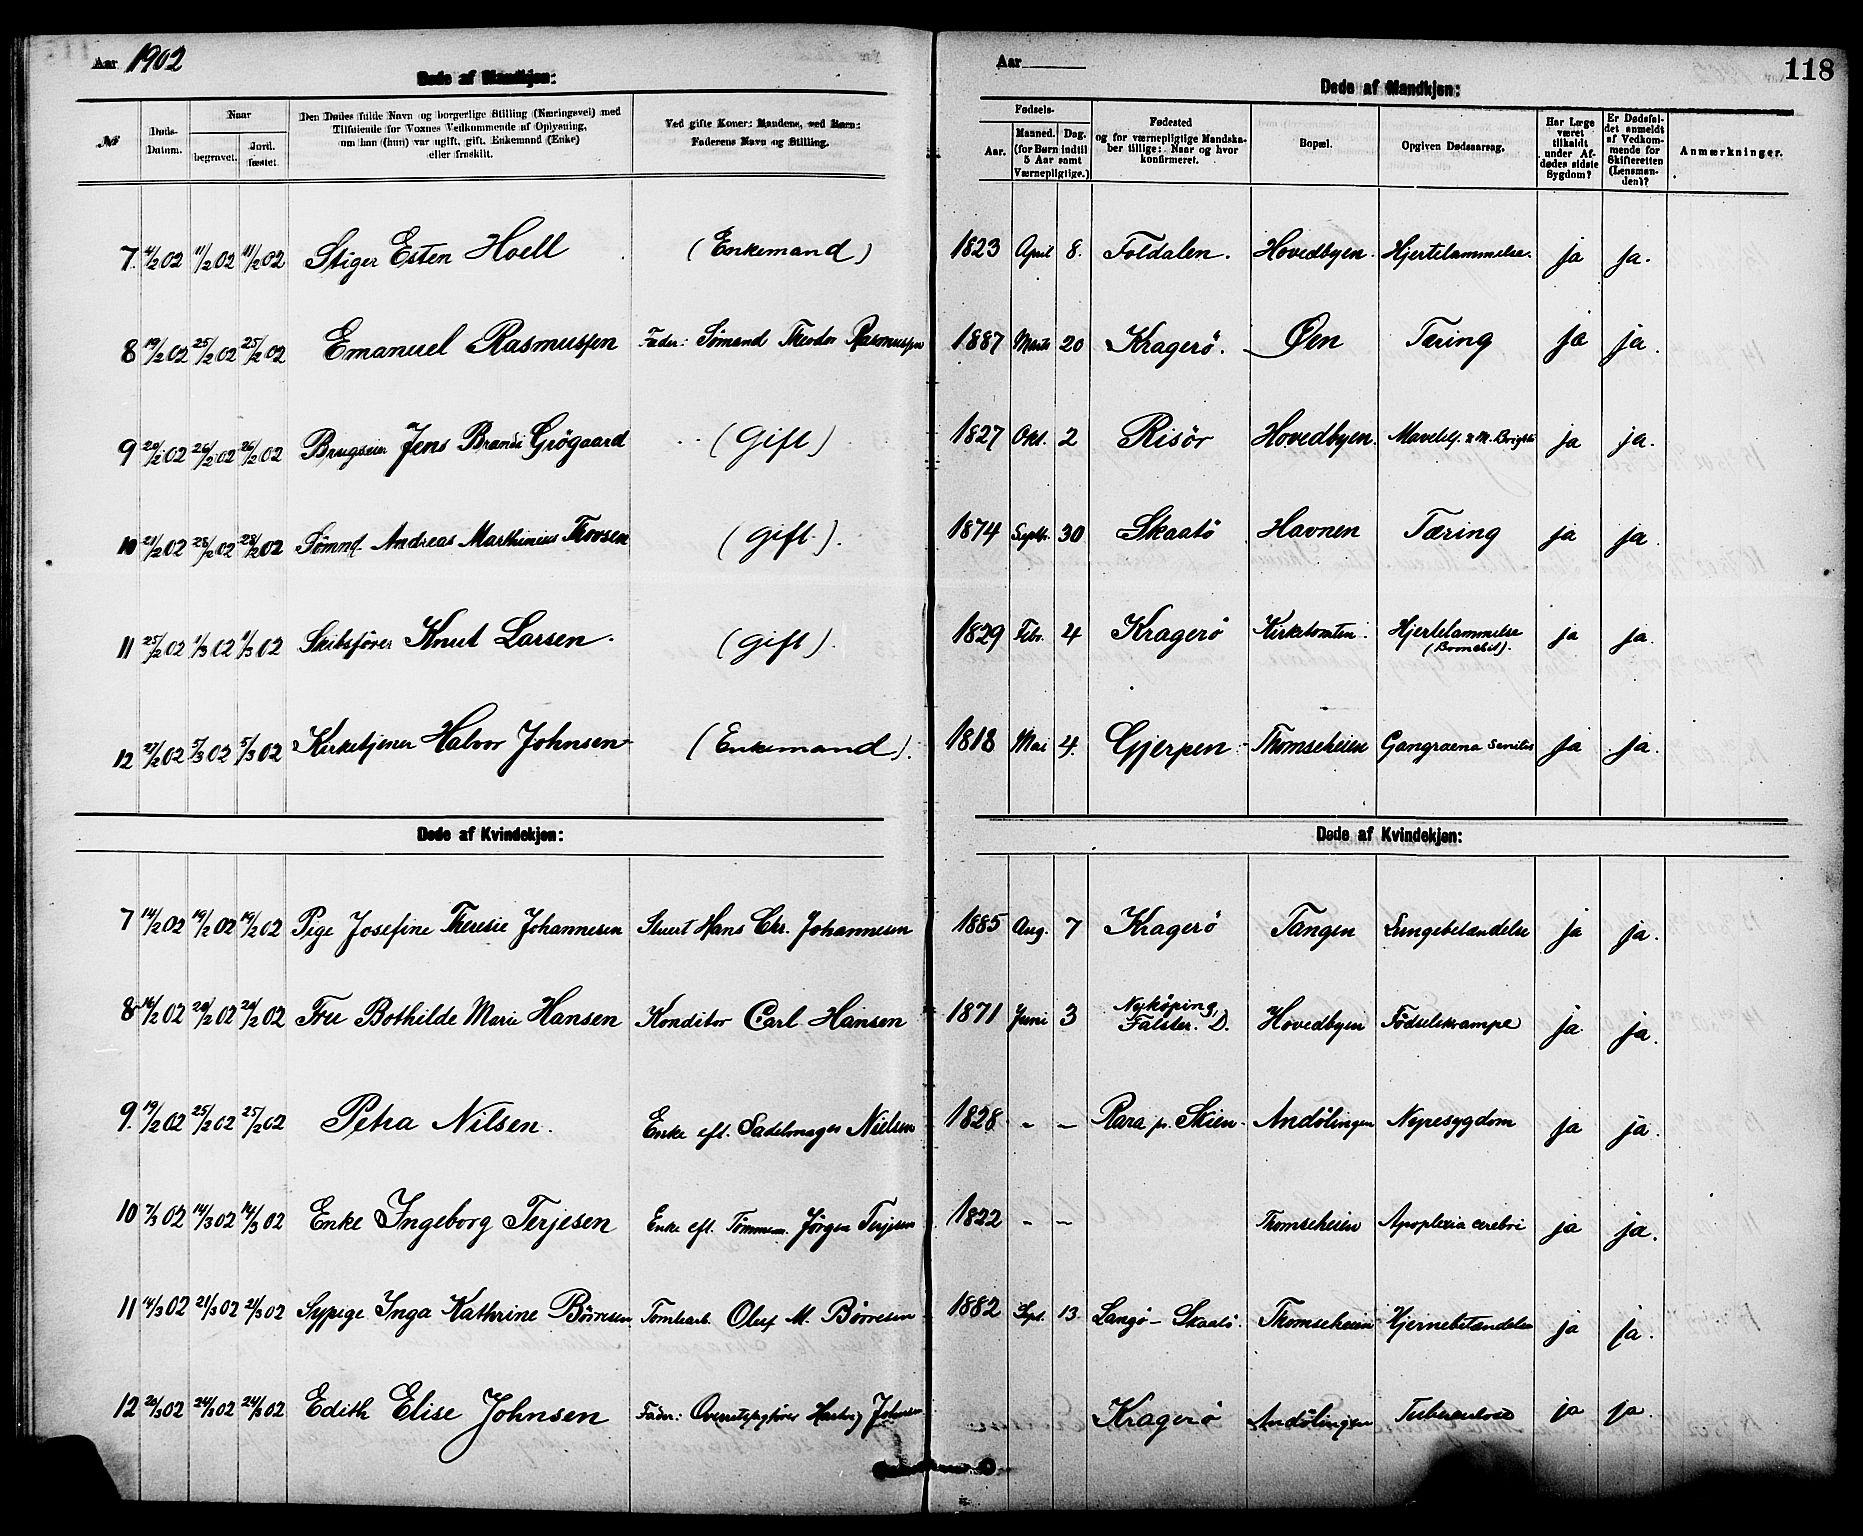 Aar 1902
Døde af Mandkjøn:
№
Døds-Datum.
Naar
begravet.
Jord. fæstet.
Den Dødes fulde Navn og borgerlige Stilling (Næringsvei) med
Tilføiende for Voxnes Vedkommende af Oplysning,
om han (hun) var ugift, gift, Enkemand (Enke)
eller fraskilt.
Ved gifte Koner: Mandens, ved Børn:
Faderens Navn og Stilling.
7. 4/2 02 11/2 02 11/2 02 Stiger Esten Hoell (Enkemand)
8 19/2 02 25/2 02 25/2 02 Emanuel Rasmussen Fader: Sömand Theodor Rasmussen
9 20/2 02 26/2 02 26/2 02 Brugseier Jens Brandi Grögaard (Gift)
10 21/2 02 28/2 02 28/2 02 Tömmd. Andreas Marthinius Thovsen (gift).
11 25/2 02 1/3 02 1/3 02 Skibsförer Knut Larsen. (gift).
12 27/2 02 5/3 02 5/3 02 Kirketjener Halvor Johnsen (Enkemand).
Døde af Kvindekjøn:
7 14/2 02 19/2 02 19/2 02 Pige Josefine Theresie Johannesen Stuert Hans Chr. Johannesen
8 16/2 02 20/2 02 20/2 02 Fru Bothilde Marie Hansen Konditor Carl Hansen
9. 19/2 02 25/2 02 25/2 02 Petra Nilsen. Enke eft. Sadelmager Nielsen
10 7/3 02 14/3 02 14/3 02 Enke Ingeborg Terjesen Enke eft. Tömmerm. Jörgen Terjesen
11 14/3 02 21/3 02 21/3 02 Sypige Inga Kathrine Börresen Tomtearb. Oluf M. Börresen
12 20/3 02 24/3 02 24/3 02 Edith Elise Johnsen Fader: Overretssagförer Hartvig Johnsen
Aar
118
Døde af Mandkjøn:
Fødsels-
Aar.
Maaned. Dag.
(for Børn indtil
5 Aar samt
Værnepligtige.)
Fødested
og for værnepligtige Mandska-
ber tillige: Naar og hvor
konfirmeret.
Bopæl.
Opgiven Dødsaarsag.
Har Læge
været
tilkaldt
under Af-
dødes sidste
Sygdom?
Er Dødsfal-
det anmeldt
af Vedkom-
mende for
Skifteretten
(Lensman-
den)?
Anmærkninger.
1823 April 8. Foldalen. Hovedbyen. Hjertelammelse. ja ja.
1887 Marts 20 Kragerö. Øen Tæring ja ja.
1827 Okt. 2 Risör Hovedbyen. ja ja.
1874 Septbr. 30 Skaatö Havnen Tæring ja ja.
1829 Febr. 4 Kragerö Kirketomten. Hjertelammelse
(Bronchit). ja ja.
1818 Mai 4. Gjerpen Thomseheien Gangraena senilis ja ja.
Døde af Kvindekjøn:
1885 Aug. 7 Kragerö Tangen Lungebetændelse ja ja.
1871 Juni 3 Nyköping,
Falster. D. Hovedbyen Födselskrampe ja ja.
1828 - - Rara pr. Skien. Andölingen Nyresygdom ja ja.
1822 - - Thomseheien Apoplexia cerebri ja ja.
1882 Sept. 13. Langö - Skaatö. Thomseheien Hjernebetændelse ja ja.
Kragerö Andölingen Tuberculose ja ja.